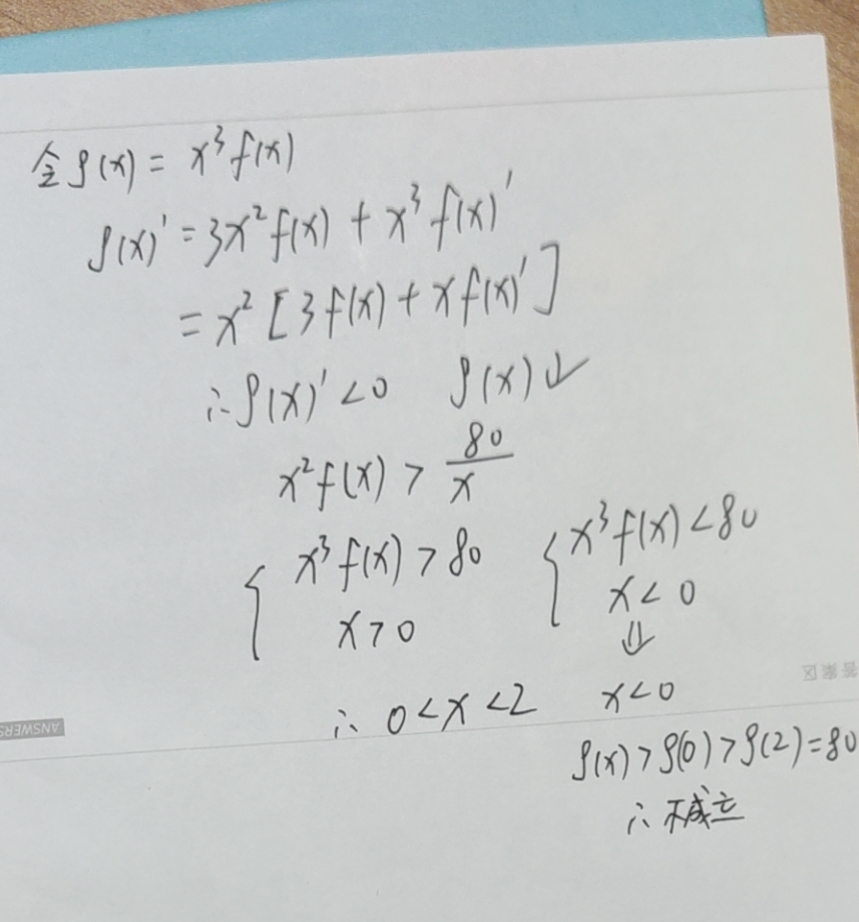 令g(x) = x³f(x)
g(x)' = 3x²f(x) + x³f(x)'
= x²[3f(x) + xf(x)']
∴g(x)' <0 g(x)↓
x²f(x) > 80/x
{ x³f(x) > 80
x > 0
{ x³f(x) < 80
x < 0
⇓
∴ 0 < x < 2
x < 0
g(x) > g(0) > g(2) = 80
∴ 不成立
答案区
ANSWERS